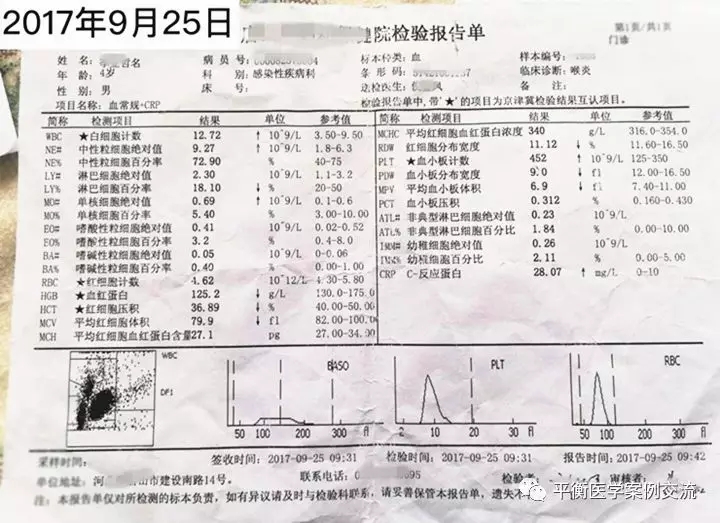 2017年9月25日
院检验报告单
第1页/共1页
门诊
姓 名: 病 员 号: 标本种类: 血 样本编号:
年 龄: 4岁 科 别: 感染性疾病科 条 形 码: 临床诊断: 喉炎
性 别: 男 床 号: 送检医生: 备 注:
项目名称: 血常规+CRP 检验报告单中,带'★'的项目为京津冀检验结果互认项目。
简称 检测项目 结果 单位 参考值 简称 检测项目 结果 单位 参考值
WBC ★白细胞计数 12.72 ↑ 10^9/L 3.50-9.50 MCHC 平均红细胞血红蛋白浓度 340 g/L 316.0-354.0
NE# 中性粒细胞绝对值 9.27 ↑ 10^9/L 1.8-6.3 RDW 红细胞分布宽度 11.12 ↓ % 11.60-16.50
NE% 中性粒细胞百分率 72.90 % 40-75 PLT ★血小板计数 452 ↑ 10^9/L 125-350
LY# 淋巴细胞绝对值 2.30 10^9/L 1.1-3.2 PDW 血小板分布宽度 9.0 ↓ fl 12.00-16.50
LY% 淋巴细胞百分率 18.10 ↓ % 20-50 MPV 平均血小板体积 6.9 ↓ fl 7.40-11.00
MO# 单核细胞绝对值 0.69 ↑ 10^9/L 0.1-0.6 PCT 血小板压积 0.312 % 0.160-0.430
MO% 单核细胞百分率 5.40 % 3.00-10.00 ATL# 非典型淋巴细胞绝对值 0.23 10^9/L
EO# 嗜酸性粒细胞绝对值 0.41 10^9/L 0.02-0.52 ATL% 非典型淋巴细胞百分比 1.84 % 0.00-10.00
EO% 嗜酸性粒细胞百分率 3.2 % 0.4-8.0 IMM# 幼稚细胞绝对值 0.26 10^9/L
BA# 嗜碱性粒细胞绝对值 0.05 10^9/L 0-0.06 IMM% 幼稚细胞百分比 2.11 % 0.00-5.00
BA% 嗜碱性粒细胞百分率 0.40 % 0.00-1.00 CRP C-反应蛋白 28.07 ↑ mg/L 0-10
RBC ★红细胞计数 4.62 10^12/L 4.30-5.80
HGB ★血红蛋白 125.2 ↓ g/L 130.0-175.0
HCT ★红细胞压积 36.89 ↓ % 40.00-50.00
MCV 平均红细胞体积 79.9 ↓ fl 82.00-100.0
MCH 平均红细胞血红蛋白含量 27.1 pg 27.00-34.00
WBC BASO PLT RBC
DF1
50 100 200 300 fl 2 10 20 30 fl 50 100 200 300 fl
采样时间: 签收时间: 2017-09-25 09:31 检验时间: 2017-09-25 09:31 报告时间: 2017-09-25 09:42
单位地址: 河 山市建设南路14号。 联系电话: 检验者 审核者
★ 本报告单仅对所检测的标本负责,如有异议请及时与检验科联系,请妥善保管本报告单,遗失不
平衡医学案例交流